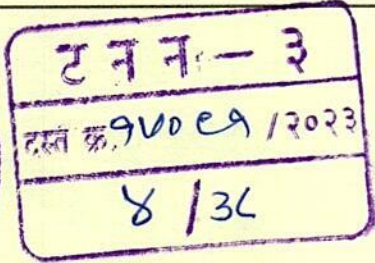 ट न न - ३
दस्त क्र. १५०९१ /२०२३
४ / ३८